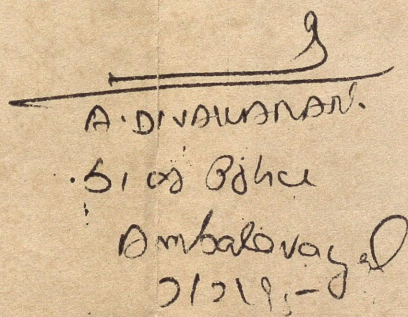 A. DIVAKARAN.
S I of Police
Ambalavayal